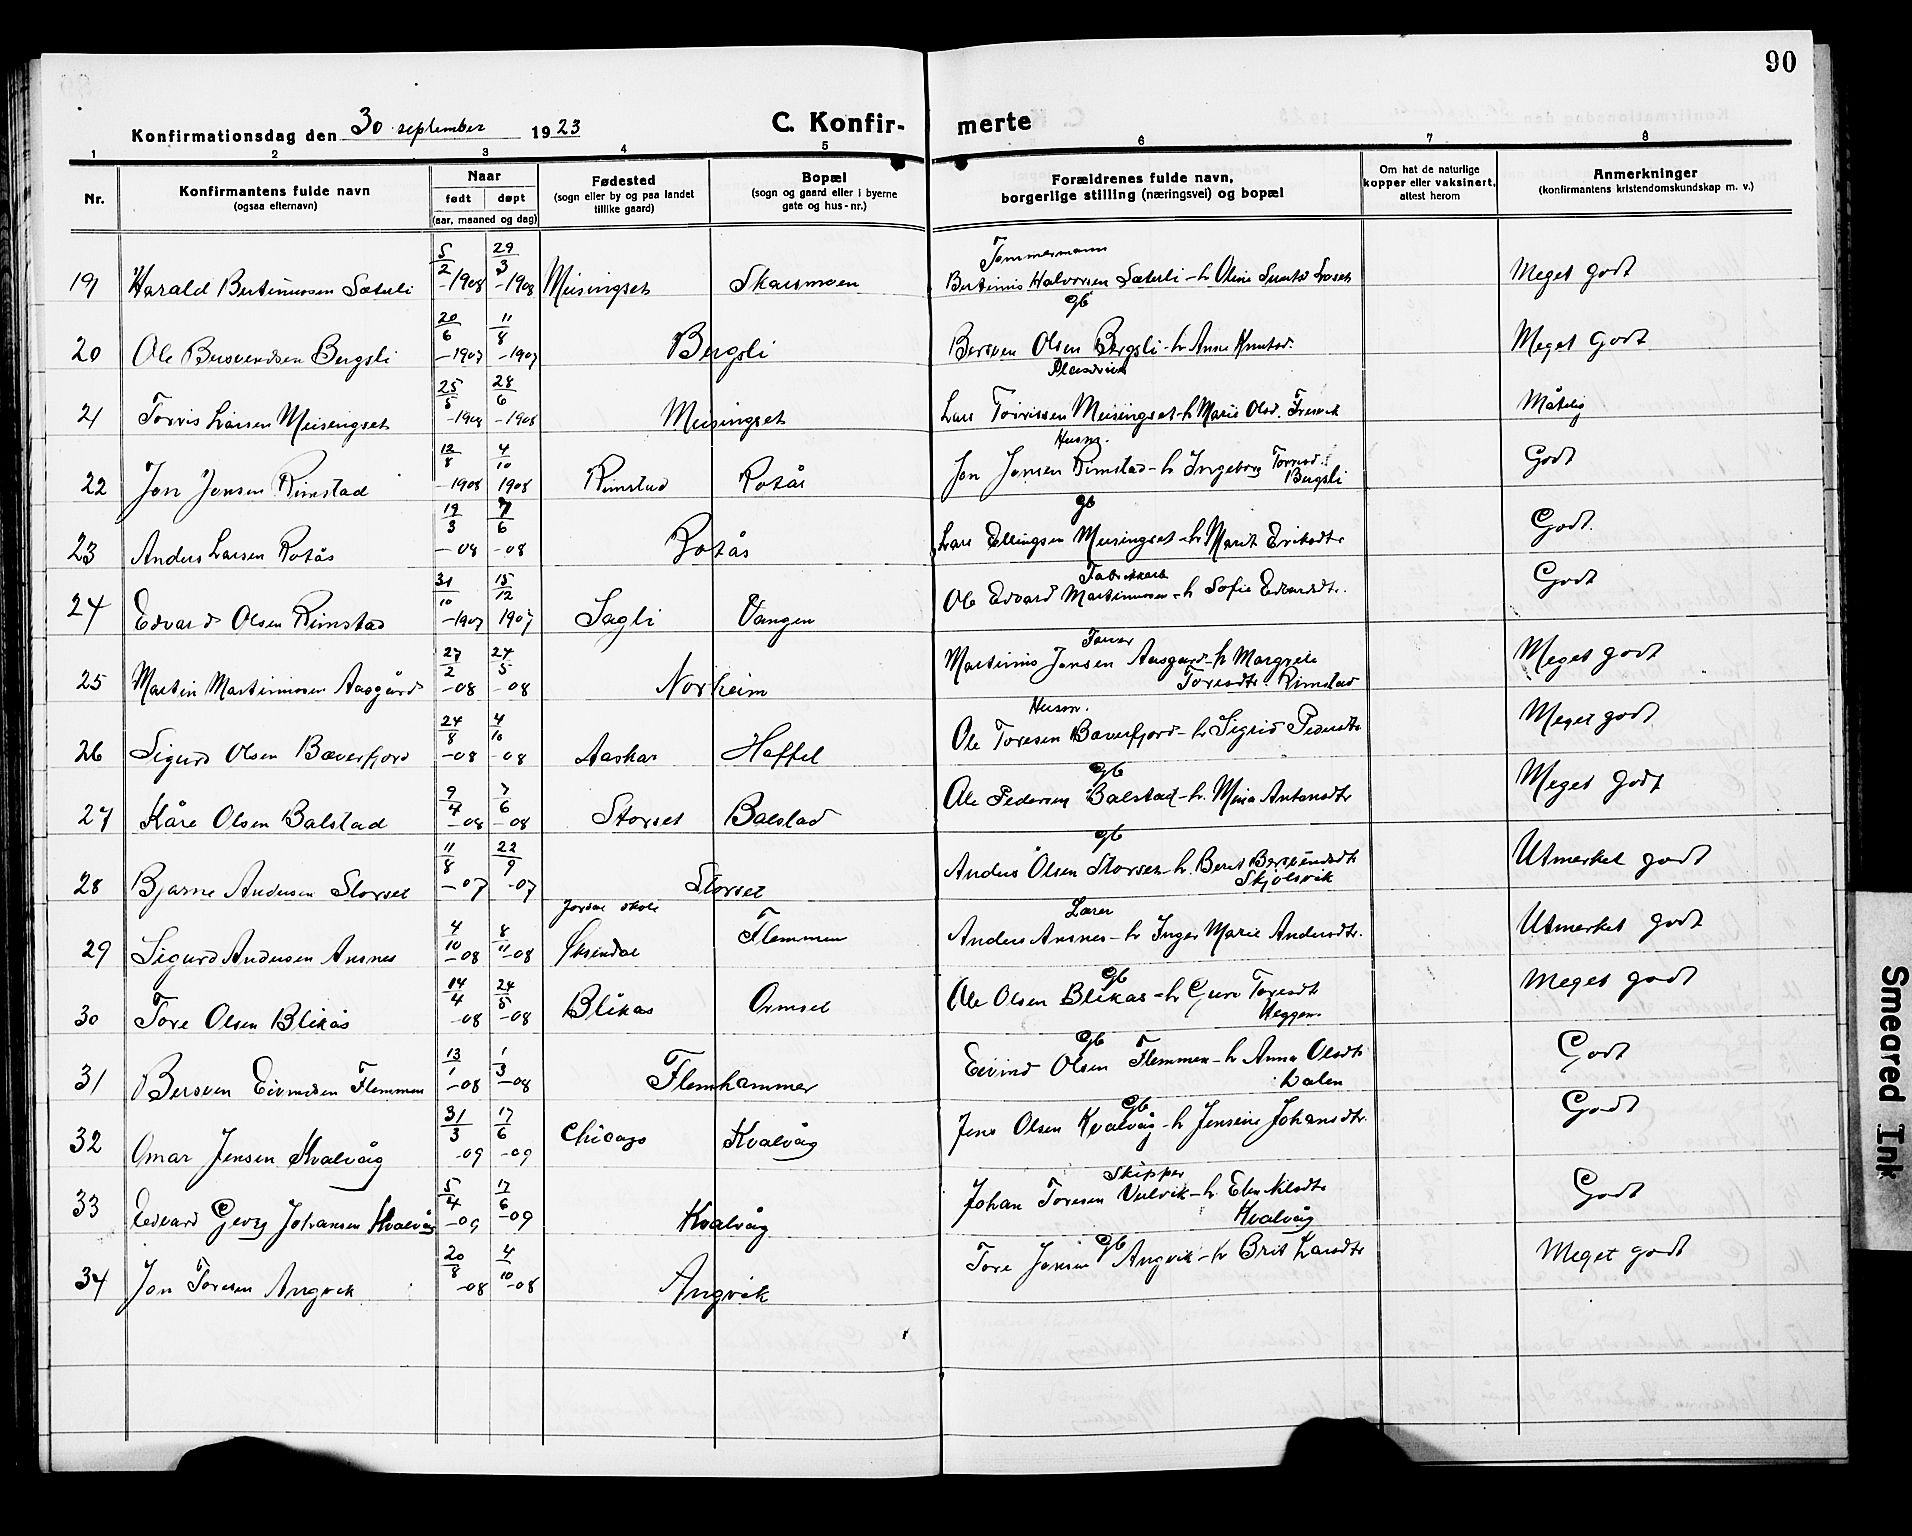 90
Konfirmationsdag den 30 september 1923
C. Konfir- merte
1 2 3 4 5 6 7 8
Nr.
Konfirmantens fulde navn
(ogsaa efternavn)
Naar
født døpt
(aar, maaned og dag)
Fødested
(sogn eller by og paa landet
tillike gaard)
Bopæl
(sogn og gaard eller i byerne
gate og hus-nr.)
Forældrenes fulde navn,
borgerlige stilling (næringsvei) og bopæl
Om hat de naturlige
kopper eller vaksinert,
attest herom
Anmerkninger
(konfirmantens kristendomskundskap m. v.)
Tømmermann
19 Harald Bertinussen Sæterli 5/2 -1908 29/3 -1908 Meisingset Skarsmoen Bertinus Halvorsen Sæterli - h Oline Meget godt
gb
20 Ole Bersvendsen Bergsli 20/6 -1907 11/8 -1907 Bergsli Bersven Olsen Bergsli - h Anne Knutsd. Meget Godt
21 Torris Larsen Meisingset 25/5 -1908 28/6 -1908 Meisingset Lars Torrissen Meisingset - h Marie Olsd. Måtelig
Husm.
22 Jon Jonsen Rimstad 12/8 -1908 4/10 1908 Rimstad Rotås Jon Jonsen Rimstad - h Ingeborg Godt
Bergsli
gb
23 Anders Larsen Rotås 19/3 -08 7/6 -08 Rotås Lars Ellingsen Meisingset - h Marit Eriksdtr Godt.
24 Edvard Olsen Rimstad 31/10 -1907 15/12 1907 Sagli Vangen Ole Edvard Martinussen - h Sofie Edvardsdtr. Godt
25 Martin Martinussen Aasgård 27/2 -08 24/5 -08 Norheim Martinus Jonsen Aasgård - h Margrete Meget godt
Toresdtr. Rimstad
Husm.
26 Sigurd Olsen Bæverfjord 24/8 -08 4/10 -08 Aaskar Haffel Ole Toresen Bæverfjord - h Sigrid Pedersdtr Meget godt
gb
27 Kåre Olsen Balstad 9/4 -08 7/6 -08 Storset Balstad Ole Pedersen Balstad - h. Mina Antonsdtr Meget godt
gb
28 Bjarne Andersen Storset 11/8 -07 22/9 -07 Storset Anders Olsen Storset - h. Berit Bersvendsdtr Utmerket godt
Skjølsvik
Lærer
29 Sigurd Andersen Ansnes 4/10 -08 8/11 -08 skole Øksendal Flemmen Anders Ansnes - h Inger Marie Andersdtr. Utmerket godt
gb
30 Tore Olsen Blikås 14/4 -08 24/5 -08 Blikås Ormset Ole Olsen Blikås - h Guri Toresdt Meget godt
Heggem
gb
31 Bersven Eivindsen Flemmen 13/1 -08 1/3 -08 Flemhammer Eivind Olsen Flemmen - h Anna Olsdtr Godt
Dalen
gb
32 Omar Jensen Kvalvåg 31/3 -09 17/6 -09 Chicago Kvalvåg Jens Olsen Kvalvåg - h Jensine Johansdtr. Godt
Skipper
33 Edvard Georg Johansen Kvalvåg 5/4 -09 17/6 -09 Kvalvåg Johan Toresen - h. Elen Nilsdtr Godt
Kvalvåg
gb
34 Jon Toresen Angvik 20/8 -08 4/10 -08 Angvik Tore Jonsen Angvik - h Brit Larsdtr Meget godt
Smeared Ink